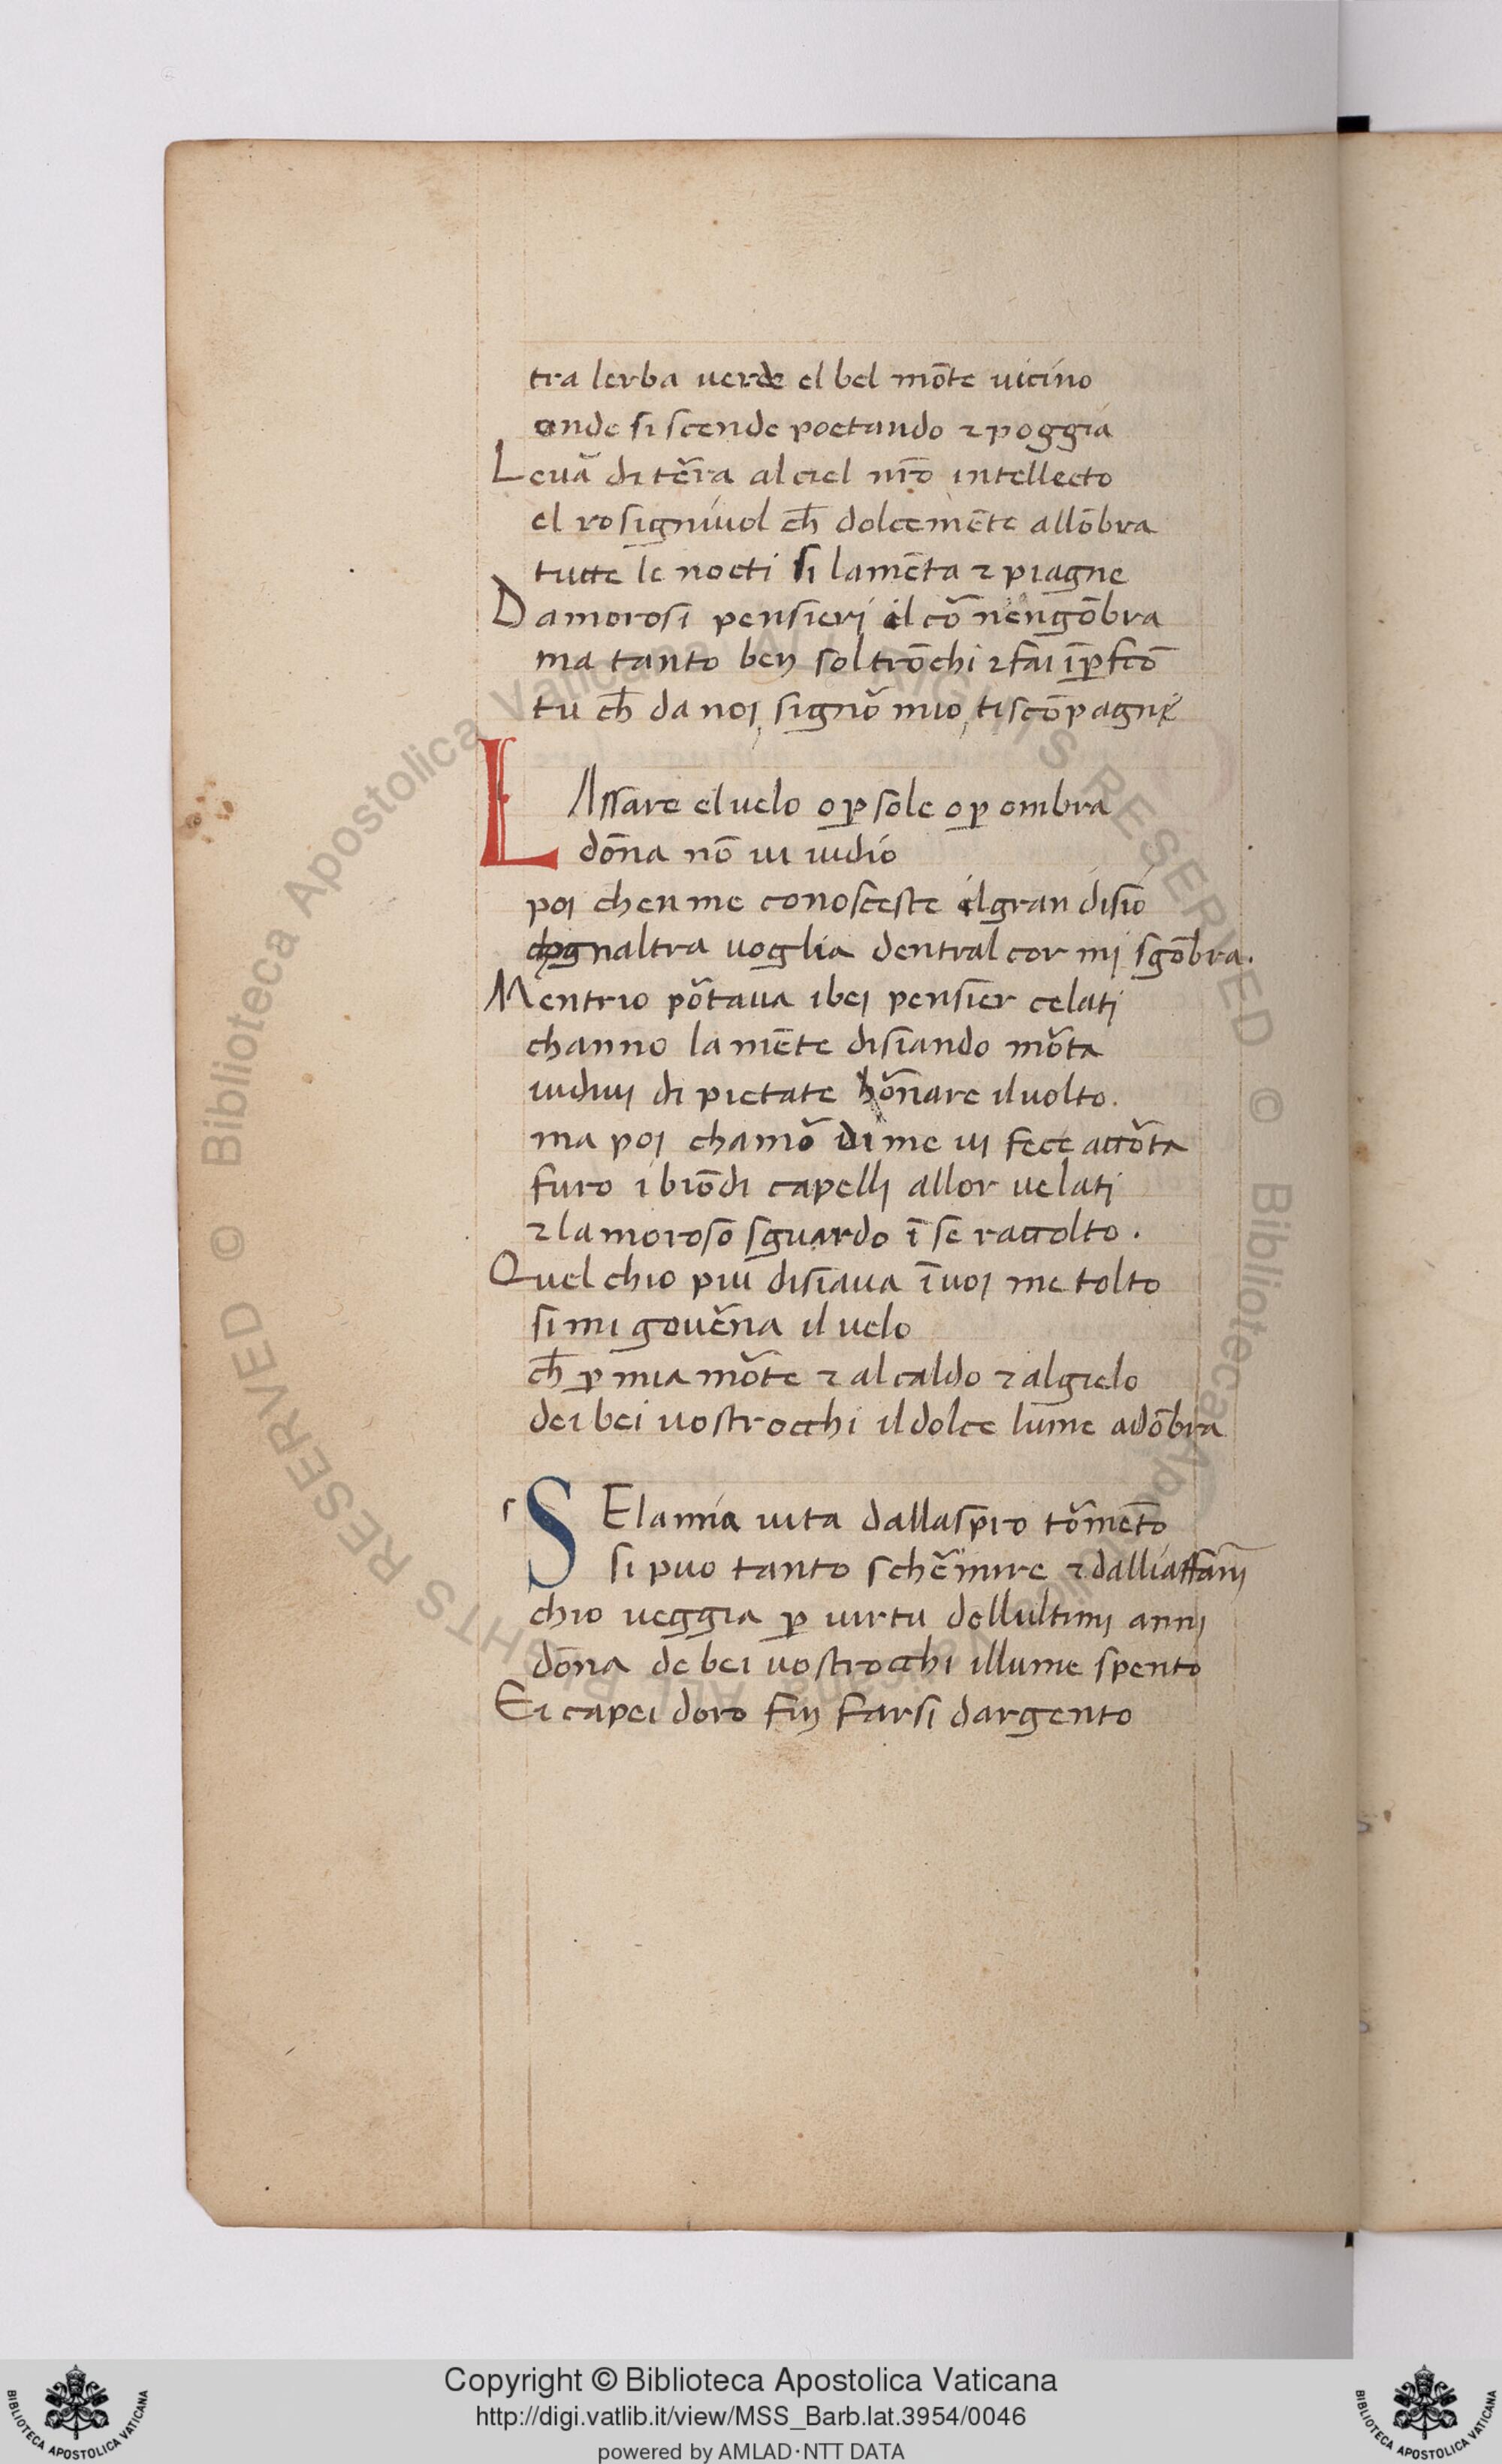 tra lerba uerde el bel mōte uicino
onde si scende poetando ⁊ poggia
Leuā di tēra al ciel nr̄o intellecto
el rosigniuol ch̄ dolcemēte allōbra
tutte le nocti si lamēta ⁊ piagne
Damorosi pensierj il cō nengōbra
ma tanto ben sol trōchi ⁊ fai īꝑfcō
tu ch̄ da noj signō mio ti scōpagne
LAssare el uelo o ꝑ sole o ꝑ ombra
dōna nō ui uidio
poj chen me conosceste il gran disio
chognaltra uoglia dentral cor mj sgōbra.
Mentrio pōtaua i bej pensier celatj
channo la mēte disiando mōta
uidiuj di pietate hōnare il uolto.
ma poj chamō di me uj fece accōta
furo i biōdi capellj allor uelatj
⁊ lamoroso sguardo ī se raccolto.
Quel chio piu disiaua ī uoj me tolto
si mi gouēna il uelo
ch̄ ꝑ mia mōte ⁊ al caldo ⁊ al gielo
dei bei uostrocchi il dolce lume adōbra
s SE la mia uita dallasp̄ro tōmēto
si puo tanto schēmire ⁊ dalli affānj
chio ueggia ꝑ uirtu dellultimj annj
dōna de bei uostrocchi illume spento
Ei capei doro fin farsi dargento
Copyright © Biblioteca Apostolica Vaticana
http://digi.vatlib.it/view/MSS_Barb.lat.3954/0046
powered by AMLAD·NTT DATA